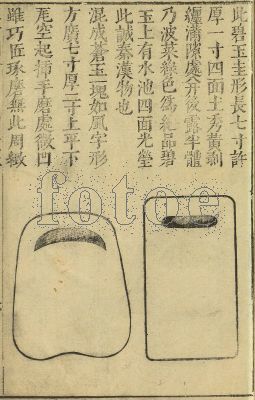 此碧玉圭形長七寸許
厚一寸四面土秀黃剥
纏滿隙處开後露半體
乃波菜綠色為純品碧
玉上有水池四面光瑩
此誠秦漢物也
混成蒼玉一塊如風字形
方廣七寸厚二寸上平下
尾空起掃手磨處微凹
雖巧匠琢磨無此周緻
fotoe